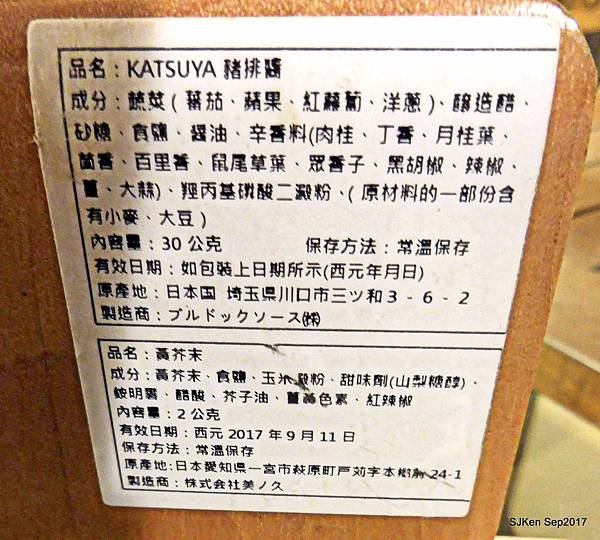 品名：KATSUYA 豬排醬
成分：蔬菜(蕃茄、蘋果、紅蘿蔔、洋蔥)、釀造醋、
砂糖、食鹽、醬油、辛香料(肉桂、丁香、月桂葉、
茴香、百里香、鼠尾草葉、眾香子、黑胡椒、辣椒、
薑、大蒜)、羥丙基磷酸二澱粉、(原材料的一部份含
有小麥、大豆)
內容量：30 公克 保存方法：常溫保存
有效日期：如包裝上日期所示(西元年月日)
原產地：日本国 埼玉県川口市三ツ和３－６－２
製造商：ブルドックソース㈱
品名：黃芥末
成分：黃芥末、食鹽、玉米澱粉、甜味劑(山梨糖醇)、
銨明礬、醋酸、芥子油、薑黃色素、紅辣椒
內容量：2 公克
有效日期：西元 2017 年 9 月 11 日
保存方法：常溫保存
原產地:日本愛知県一宮市萩原町戸苅字本郷前 24-1
製造商：株式会社美ノ久
SJKen Sep2017